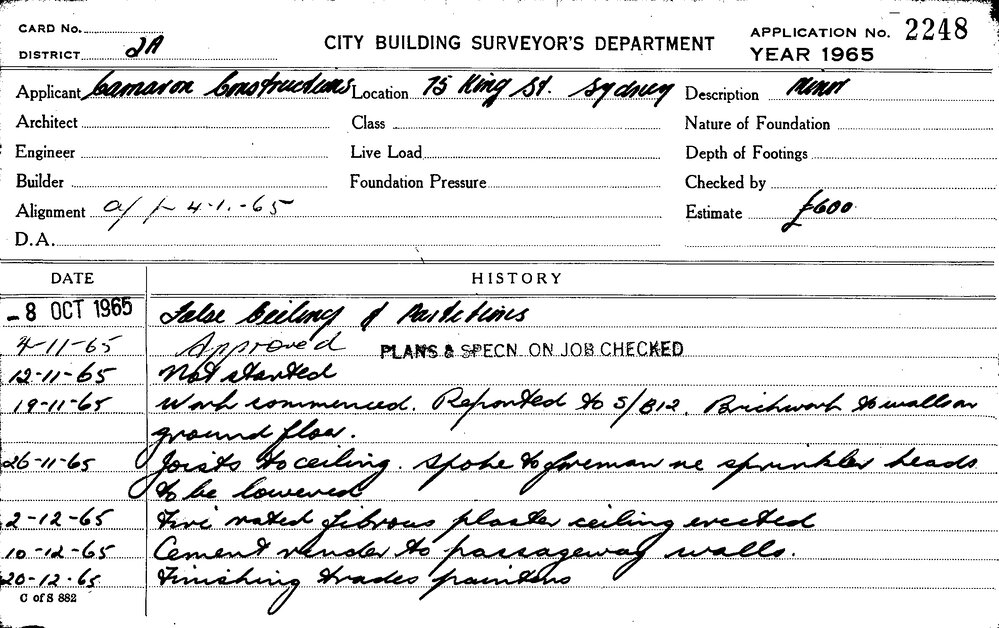 CARD No.
DISTRICT 2A
CITY BUILDING SURVEYOR'S DEPARTMENT
APPLICATION No. 2248
YEAR 1965
Applicant Camaron Constructions Location 75 King St. Sydney Description Minor
Architect Class Nature of Foundation
Engineer Live Load Depth of Footings
Builder Foundation Pressure Checked by
Alignment 4-1.-65 Estimate £600
D.A.
DATE HISTORY
-8 OCT 1965 False Ceiling & Partitions
4-11-65 Approved PLANS & SPECN. ON JOB CHECKED
12-11-65 Not started
19-11-65 Work commenced. Reported to S/B12. Brickwork to walls on
ground floor.
26-11-65 Joists to ceiling. Spoke to foreman re sprinkler heads
to be lowered
2-12-65 Fire rated fibrous plaster ceiling erected
10-12-65 Cement render to passageway walls.
20-12-65 Finishing trades painters
C of S 882